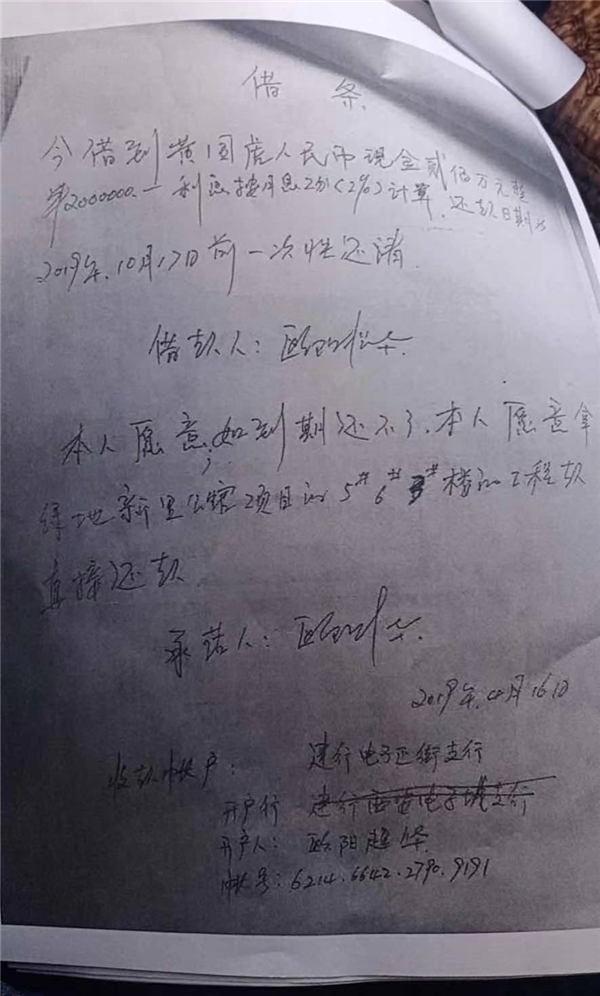 借 条
今借到黄国虎人民币现金贰佰万元整
2000000.一 利息按月息2分(2%)计算,还款日期为
2019年.10月17日前一次性还清
借款人:
本人愿意;如到期还不了.本人愿意拿
绿地新里公馆项目的5# 6# 楼的工程款
直接还款
承诺人:
2019年 月16日
收款帐户: 建行电子正街支行
开户行 建行西安电子城支行
开户人: 欧阳 华
帐号:6214.6642.2790.9191